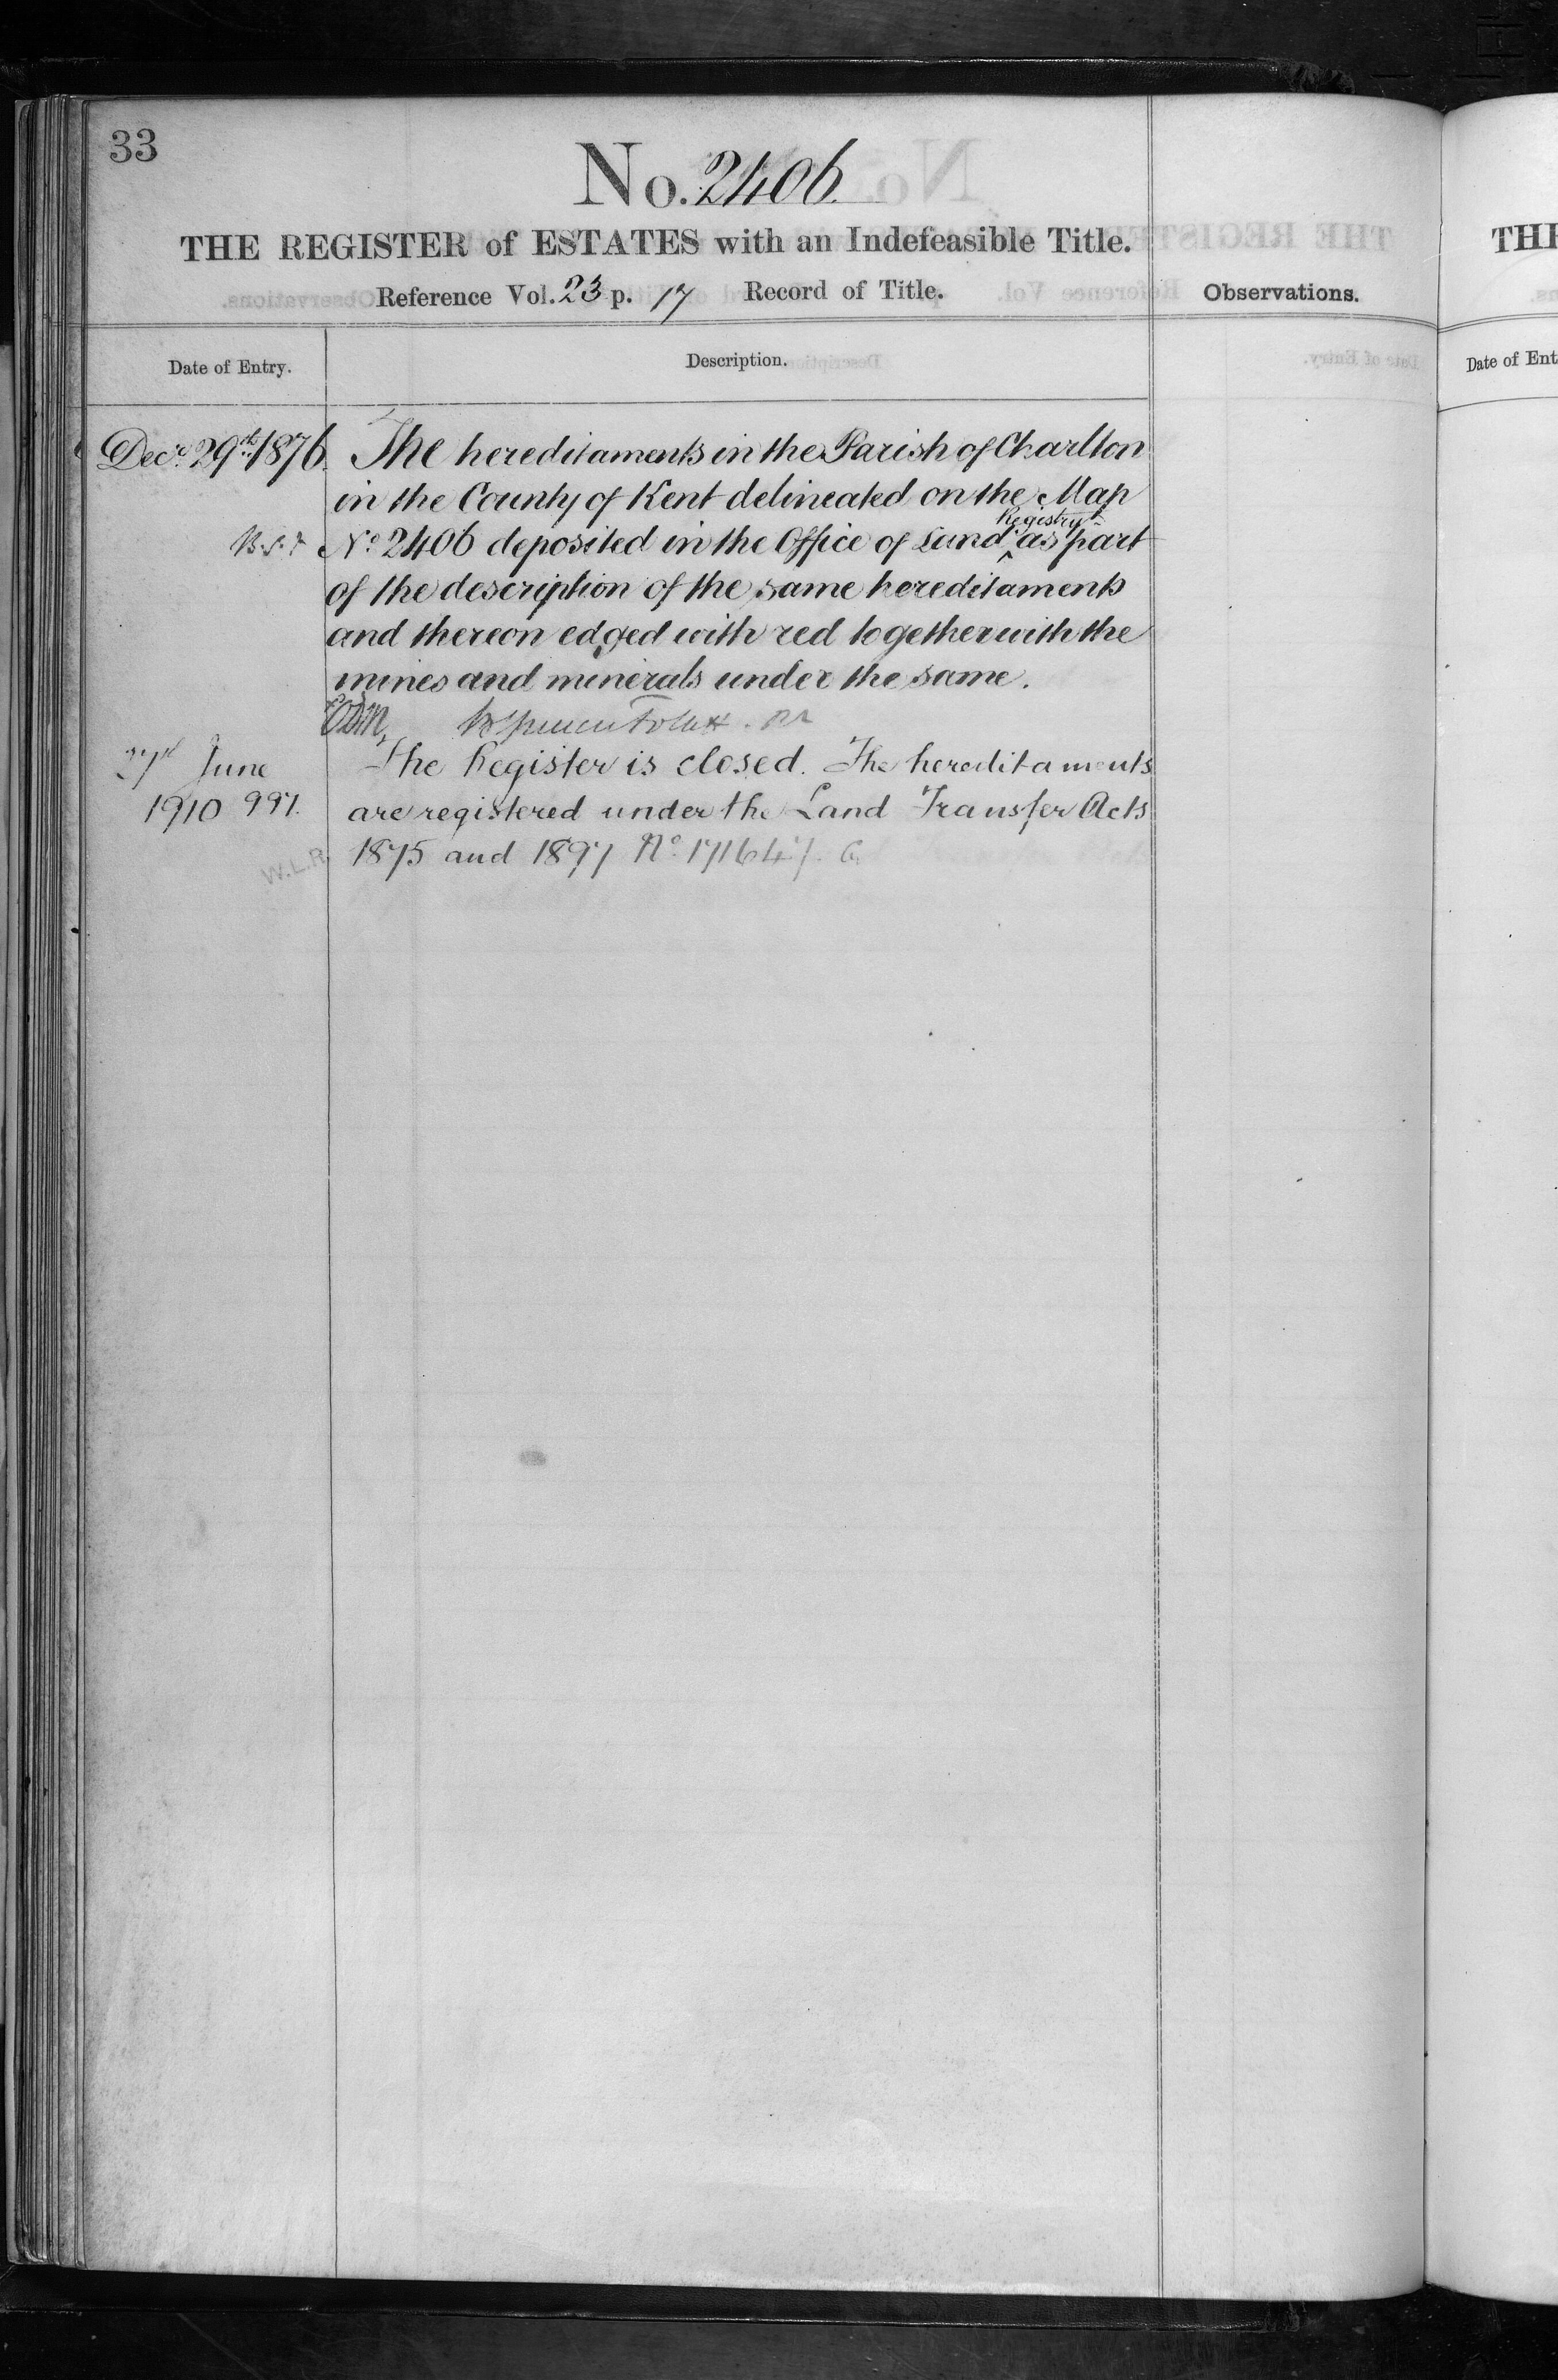 33
No. 2406.
THE REGISTER of ESTATES with an Indefeasible Title.
Reference Vol. 23 p. 17 Record of Title.
Observations.
Date of Entry.
Description.
Decr. 29th 1876. The hereditaments in the Parish of Charlton
in the County of Kent delineated on the Map
No 2406 deposited in the Office of Land Registry as part
of the description of the same hereditaments
and thereon edged with red together with the
mines and minerals under the same.
June The Register is closed. The hereditaments
1910 997. are registered under the Land Transfer Acts
W.L.R. 1875 and 1897 No. 171647.
THE
Date of Ent